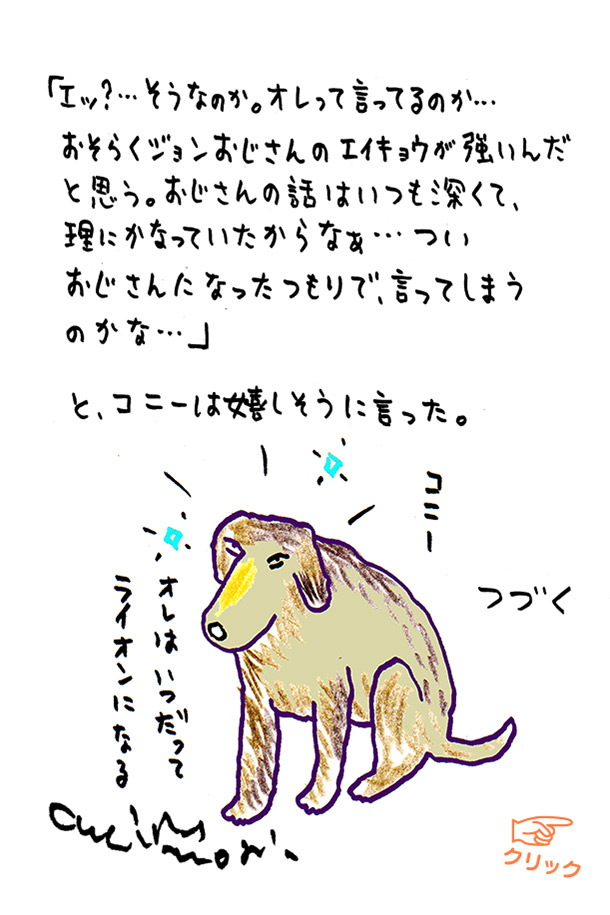 「エッ？…そうなのか。オレって言ってるのか…
おそらくジョンおじさんのエイキョウが強いんだ
と思う。おじさんの話はいつも深くて、
理にかなっていたからなぁ…つい
おじさんになったつもりで、言ってしまう
のかな…」
と、コニーは嬉しそうに言った。
コニー
つづく
オレはいつだって
ライオンになる
クリック